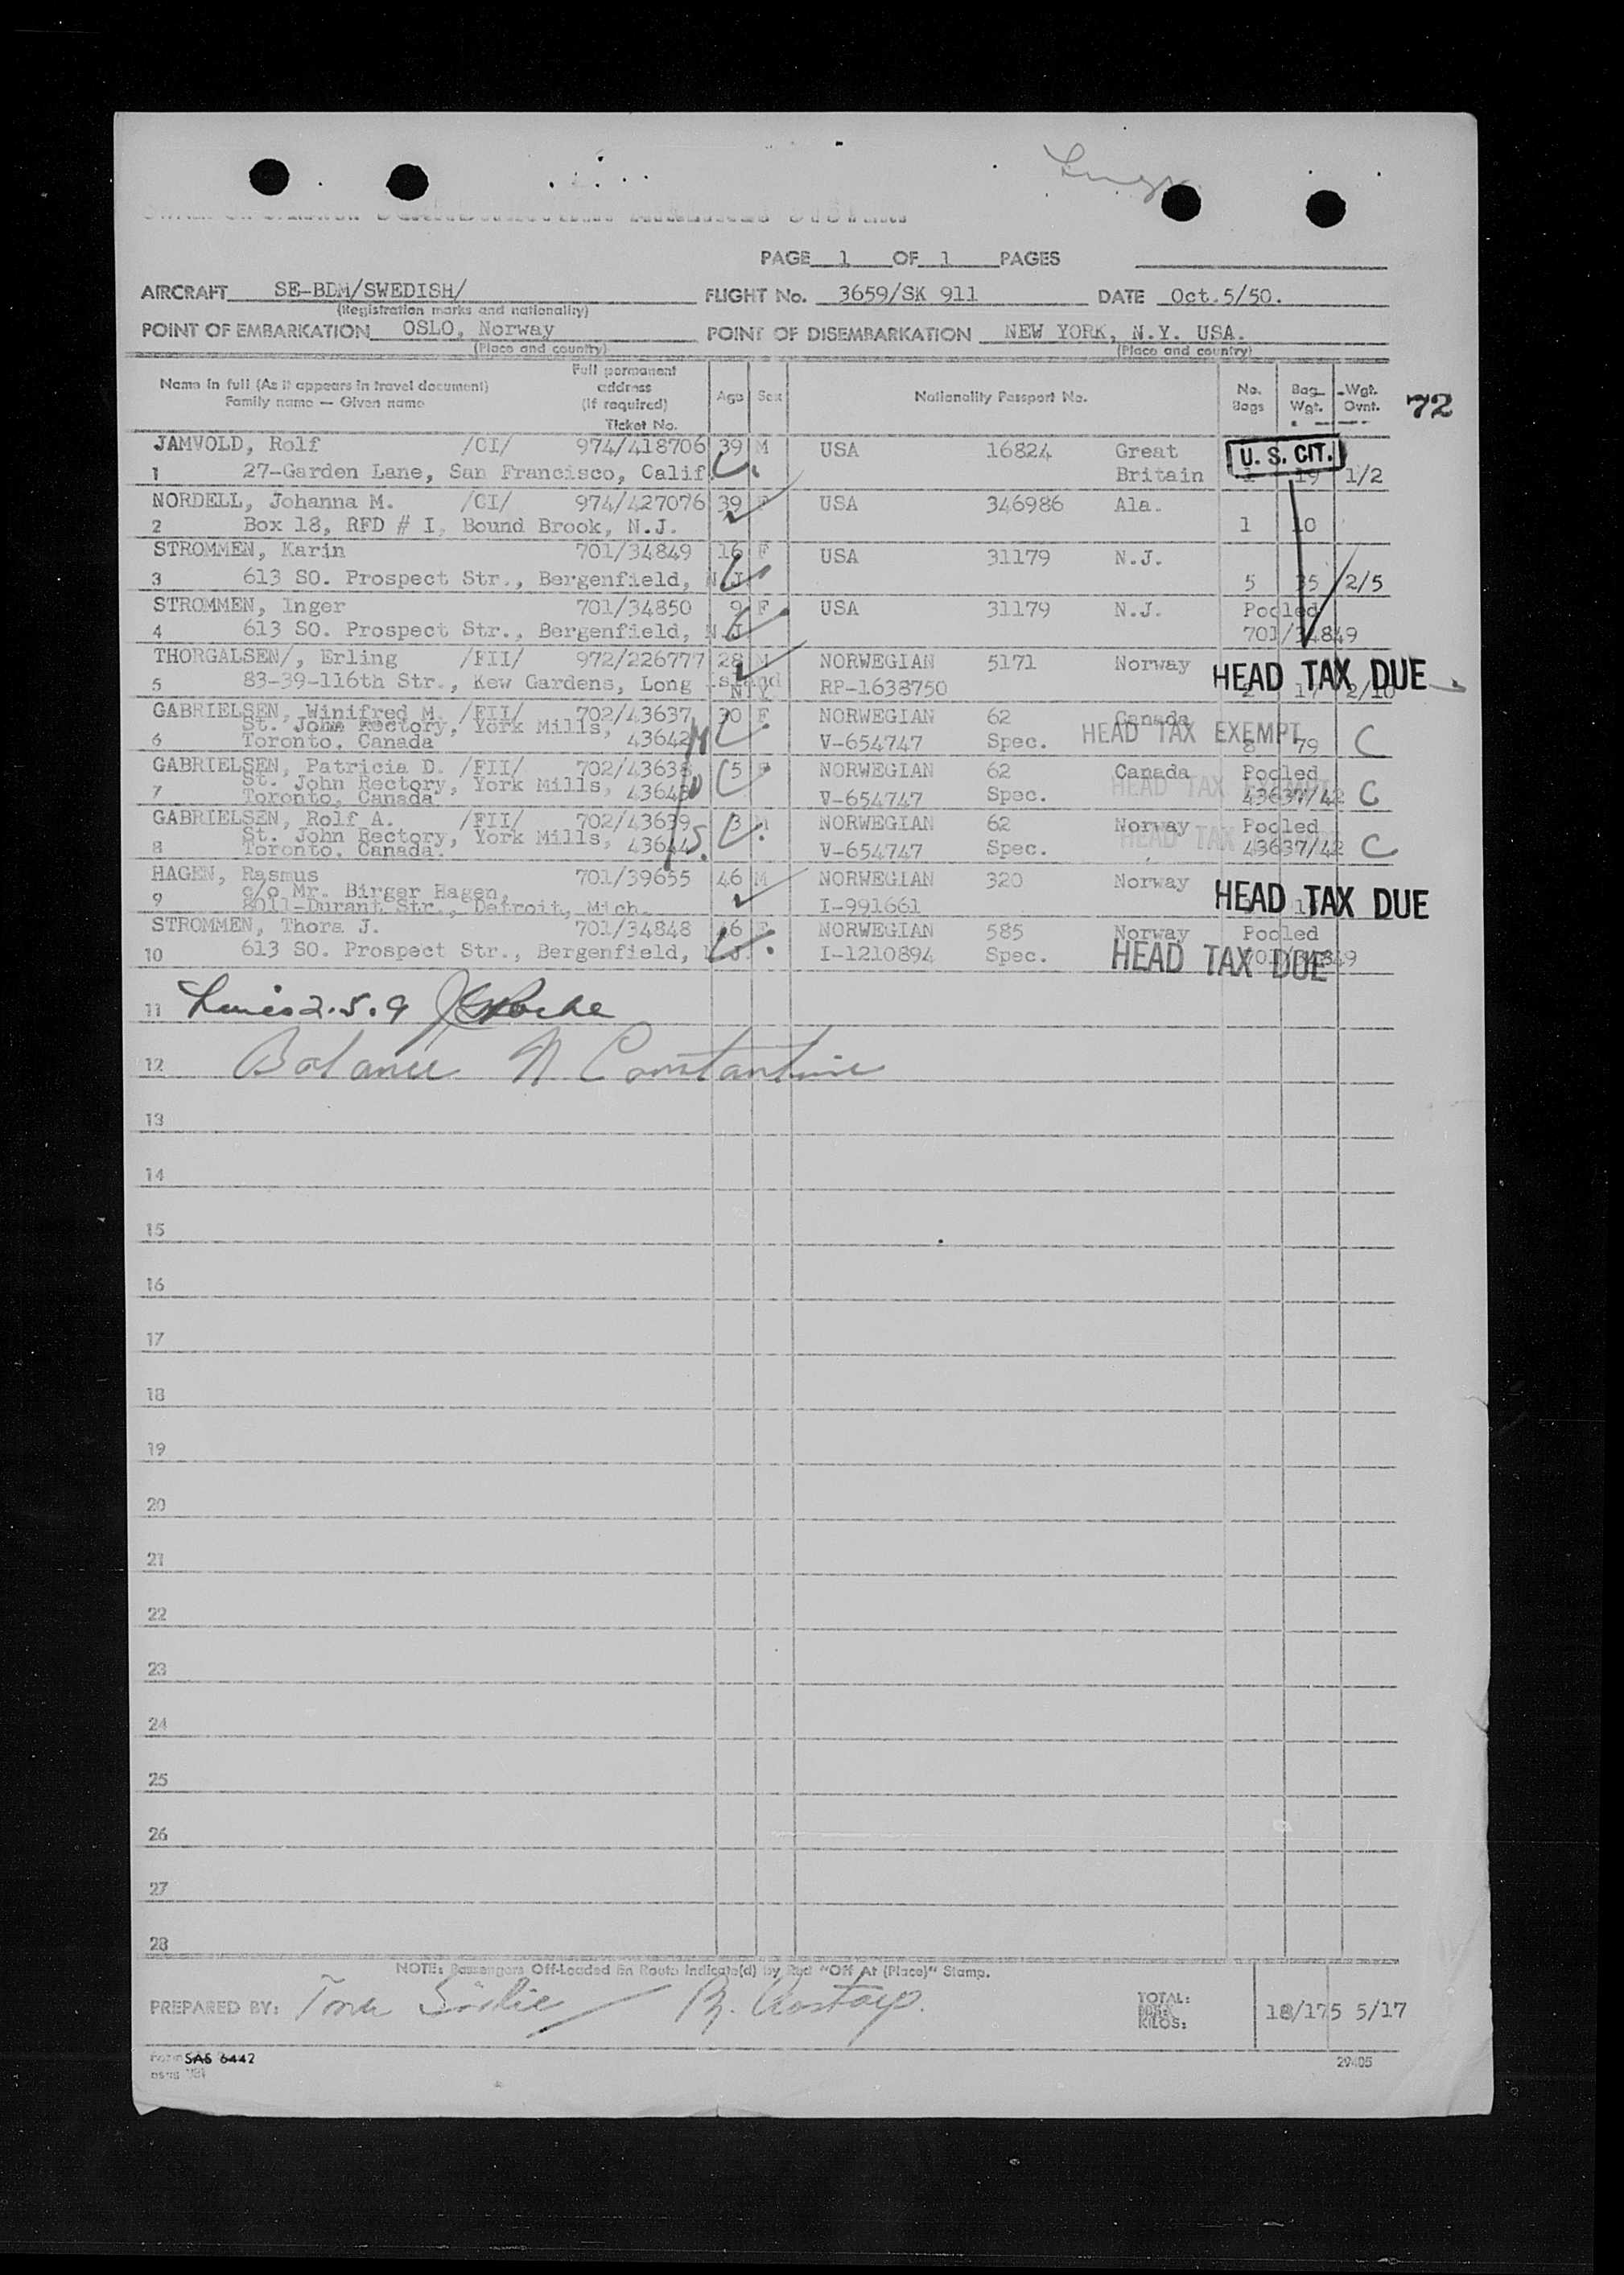 PAGE 1 OF 1 PAGES
AIRCRAFT SE-BDM/SWEDISH/ FLIGHT No. 3659/SK 911 DATE Oct.5/50.
(Registration marks and nationality)
POINT OF EMBARKATION OSLO, Norway POINT OF DISEMBARKATION NEW YORK, N.Y. USA.
(Place and country) (Place and country)
Name in full (As it appears in travel document) Family name — Given name
Full permanent address (If required) Ticket No.
Age Sex Nationality Passport No. No. Bags Bag Wgt. Wgt. Ovnt. 72
JAMVOLD, Rolf /CI/ 974/418706 39 M USA 16824 Great U. S. CIT.
1 27-Garden Lane, San Francisco, Calif. Britain 1 19 1/2
NORDELL, Johanna M. /CI/ 974/427076 39 F USA 346986 Ala.
2 Box 18, RFD # I, Bound Brook, N.J. 1 10
STROMMEN, Karin 701/34849 16 F USA 31179 N.J.
3 613 SO. Prospect Str., Bergenfield, N.J. 5 35 2/5
STROMMEN, Inger 701/34850 9 F USA 31179 N.J. Pooled
4 613 SO. Prospect Str., Bergenfield, N.J. 701/34849
THORGALSEN/, Erling /FII/ 972/226777 28 M NORWEGIAN 5171 Norway HEAD TAX DUE
5 83-39-116th Str., Kew Gardens, Long Island N.Y. RP-1638750 2 17 2/10
GABRIELSEN, Winifred M. /FII/ 702/43637 30 F NORWEGIAN 62 Canada
St. John Rectory, York Mills, HEAD TAX EXEMPT
6 Toronto, Canada 43642 V-654747 Spec. 8 79 C
GABRIELSEN, Patricia D. /FII/ 702/43638 5 F NORWEGIAN 62 Canada Pooled
St. John Rectory, York Mills, HEAD TAX
7 Toronto, Canada V-654747 Spec. 43637/42 C
GABRIELSEN, Rolf A. /FII/ 702/43639 3 M NORWEGIAN 62 Norway Pooled
St. John Rectory, York Mills, HEAD TAX
8 Toronto, Canada. 43644 V-654747 Spec. 43637/42 C
HAGEN, Rasmus 701/39655 46 M NORWEGIAN 320 Norway
c/o Mr. Birger Hagen, HEAD TAX DUE
9 8011-Durant Str., Detroit, Mich. I-991661
STROMMEN, Thora J. 701/34848 46 F NORWEGIAN 585 Norway Pooled
10 613 SO. Prospect Str., Bergenfield, N.J. I-1210894 Spec. HEAD TAX DUE 701/34849
11 Lines 2.5.9
12 Balance N Constantine
13
14
15
16
17
18
19
20
21
22
23
24
25
26
27
28
NOTE: Passengers Off-Loaded En Route Indicate(d) by Red "Off At (Place)" Stamp.
PREPARED BY: TOTAL: KILOS: 18/175 5/17
Form SAS 6442 29405